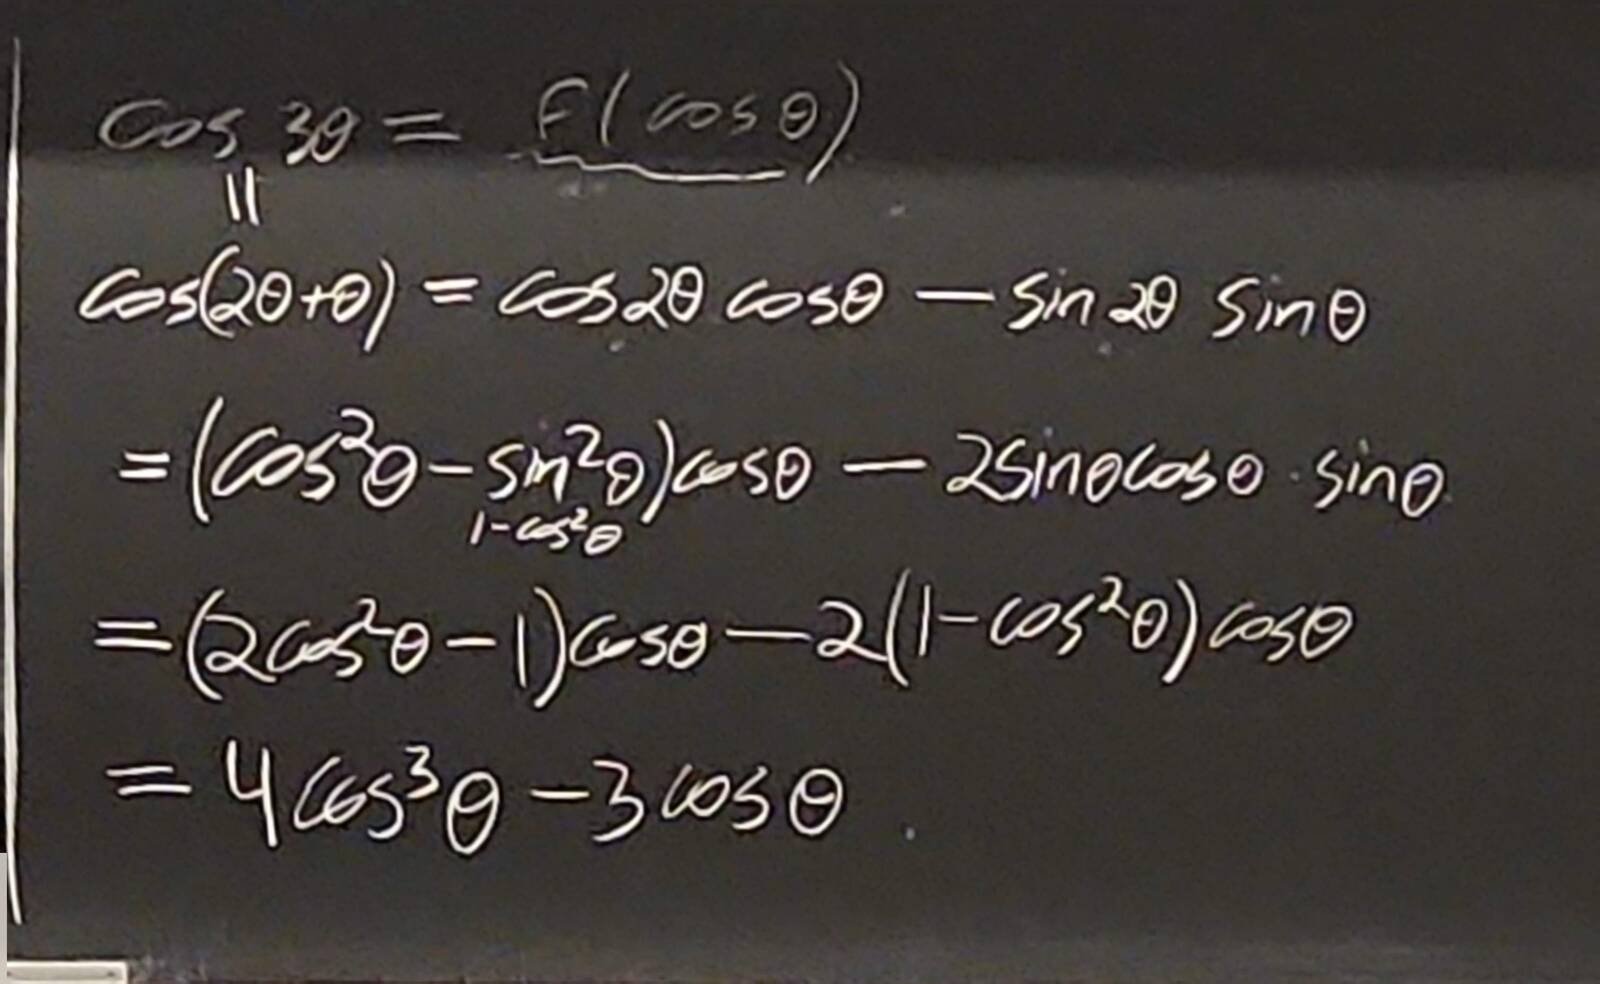 cos 3θ = F(cos θ)
||
cos(2θ+θ) = cos2θ cosθ − sin 2θ sin θ
= (cos²θ − sin²θ)cosθ − 2sinθcosθ · sinθ
1−cos²θ
= (2cos²θ − 1)cosθ − 2(1−cos²θ)cosθ
= 4cos³θ − 3cosθ